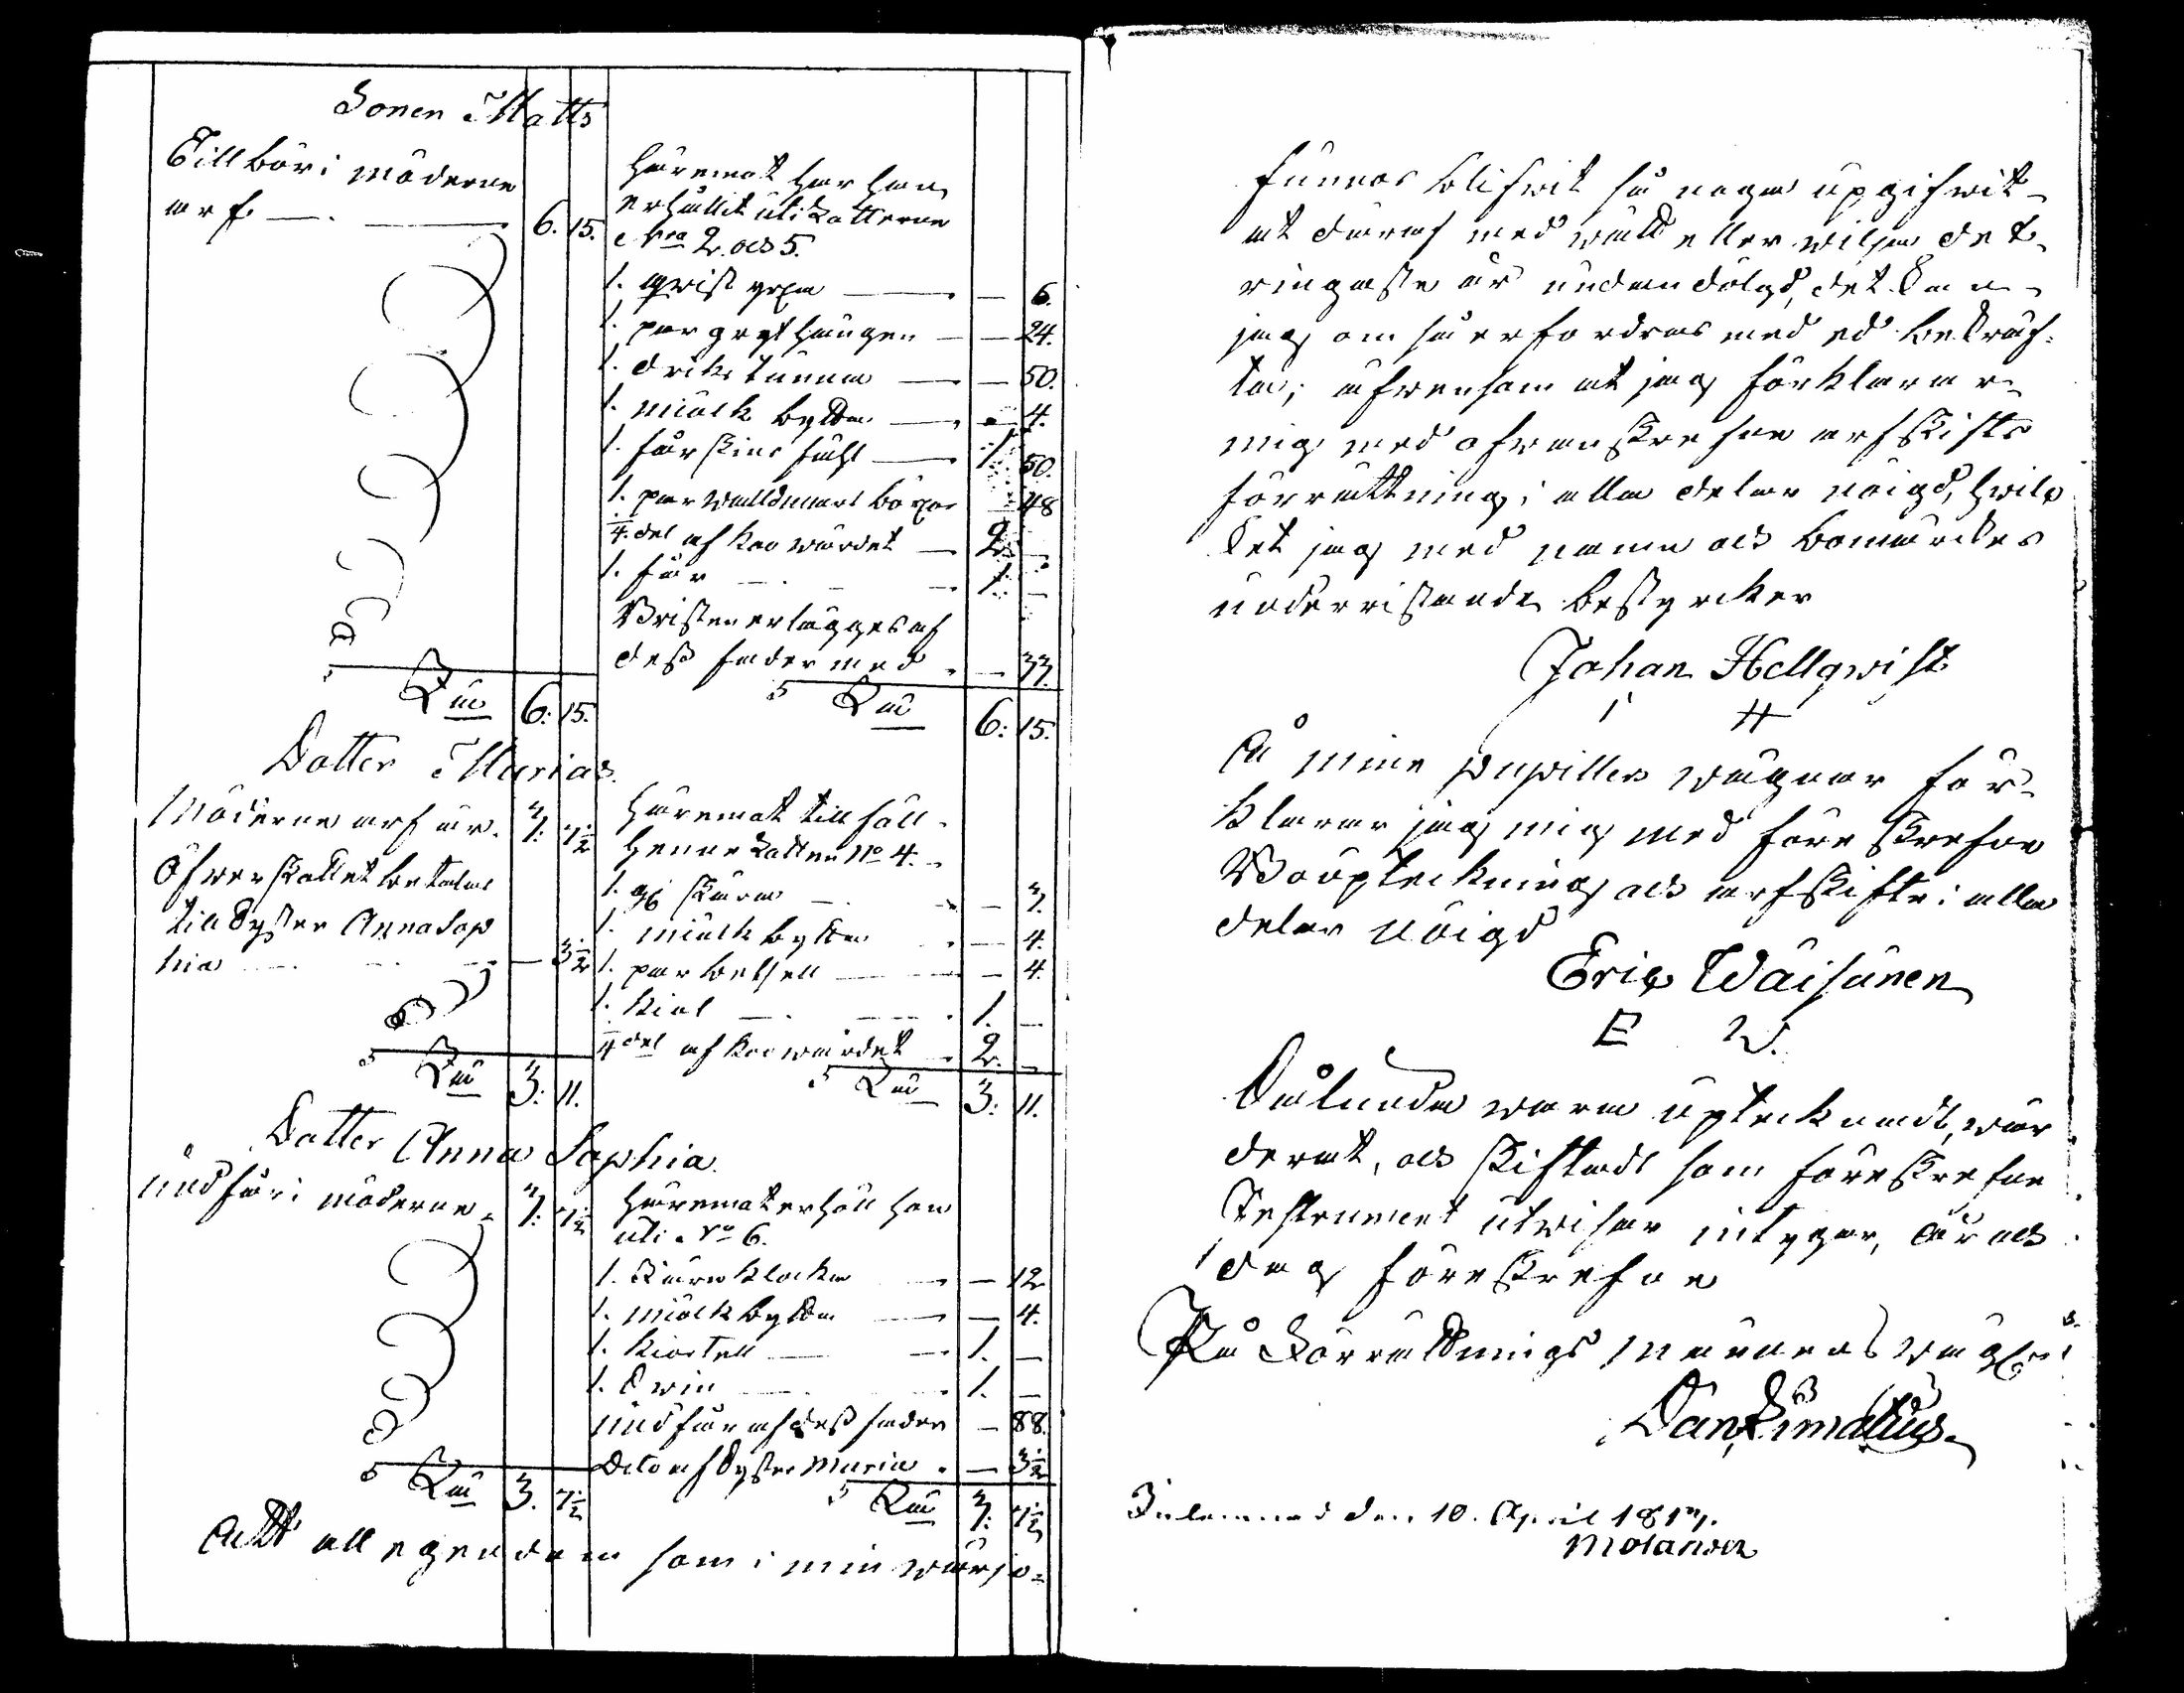 Sonen Matts
Tillkör i möderne
arf — — 6. 15.
Häremot har han
erhållit uti Lotterne
N:ra 2. och 5.
1. qvist yxa — — 6.
1. par grythängen — — 24.
1. dricks tunna — — 50.
1. miölk bytta — — 4.
1. fårskins fäll — 1. 50.
1. par walldmars böxor — 48
1/4. del af Koo wärdet — 2. —
1. får — 1. —
Bristen erlägges af
dess fader med — 33.
S:a Rub 6: 15.
S:a Rub 6: 15.
Dotter Maria
Möderne arf är 3: 7 1/2
öfwerskottet betalas
till Syster Anna Sop
hia — 3 1/2
Häremot tillföll
henne Lotten No 4.
1. skära — 3.
1. miölk bytta — 4.
1. par betsell — 4.
1. kiol — 1. —
1/4 del af Koo wärdet 2. —
S:a Rub 3: 11.
S:a Rub 3: 11.
Dotter Anna Sophia
undfår i möderne 3: 7 1/2
Häremot erhöll hon
uti No 6.
1. klocka — 12
1. miölk bytta — 4.
1. kiortell — 1. —
1. Qwiu — 1. —
undfår af dess fader — 88.
Dito af Syster Maria — 3 1/2
S:a Rub 3. 7 1/2
S:a Rub 3: 7 1/2
Att all egendom som i min wärjo
funnos blifwit så noga upgifwit
at däraf med wett eller wilja det
ringaste är undandölgd, det kan
jag om så erfordras med ed bekräf-
ta; äfwensom at jag förklarar
mig med ofwanskrefne arfskifts
förrättning i alla delar nöigd, hwil-
ket jag med namn och bomärkes
underristande bestyrcker
Johan Hellqwist
I H
På mine pupillers wägnar för-
klarar jag mig med föreskrefne
Boupteckning och arfskifte i alla
delar nöigd
Eric Wäisänen
E W.
Sålunda wara uptecknadt, wär
derat, och skiftadt som föreskrefne
Instrument utwisar intygar, År och
dag föreskrefne
På Förrättnings männens wägnar
Dan Rimatius
Inlemnad den 10. April 1817.
Molander